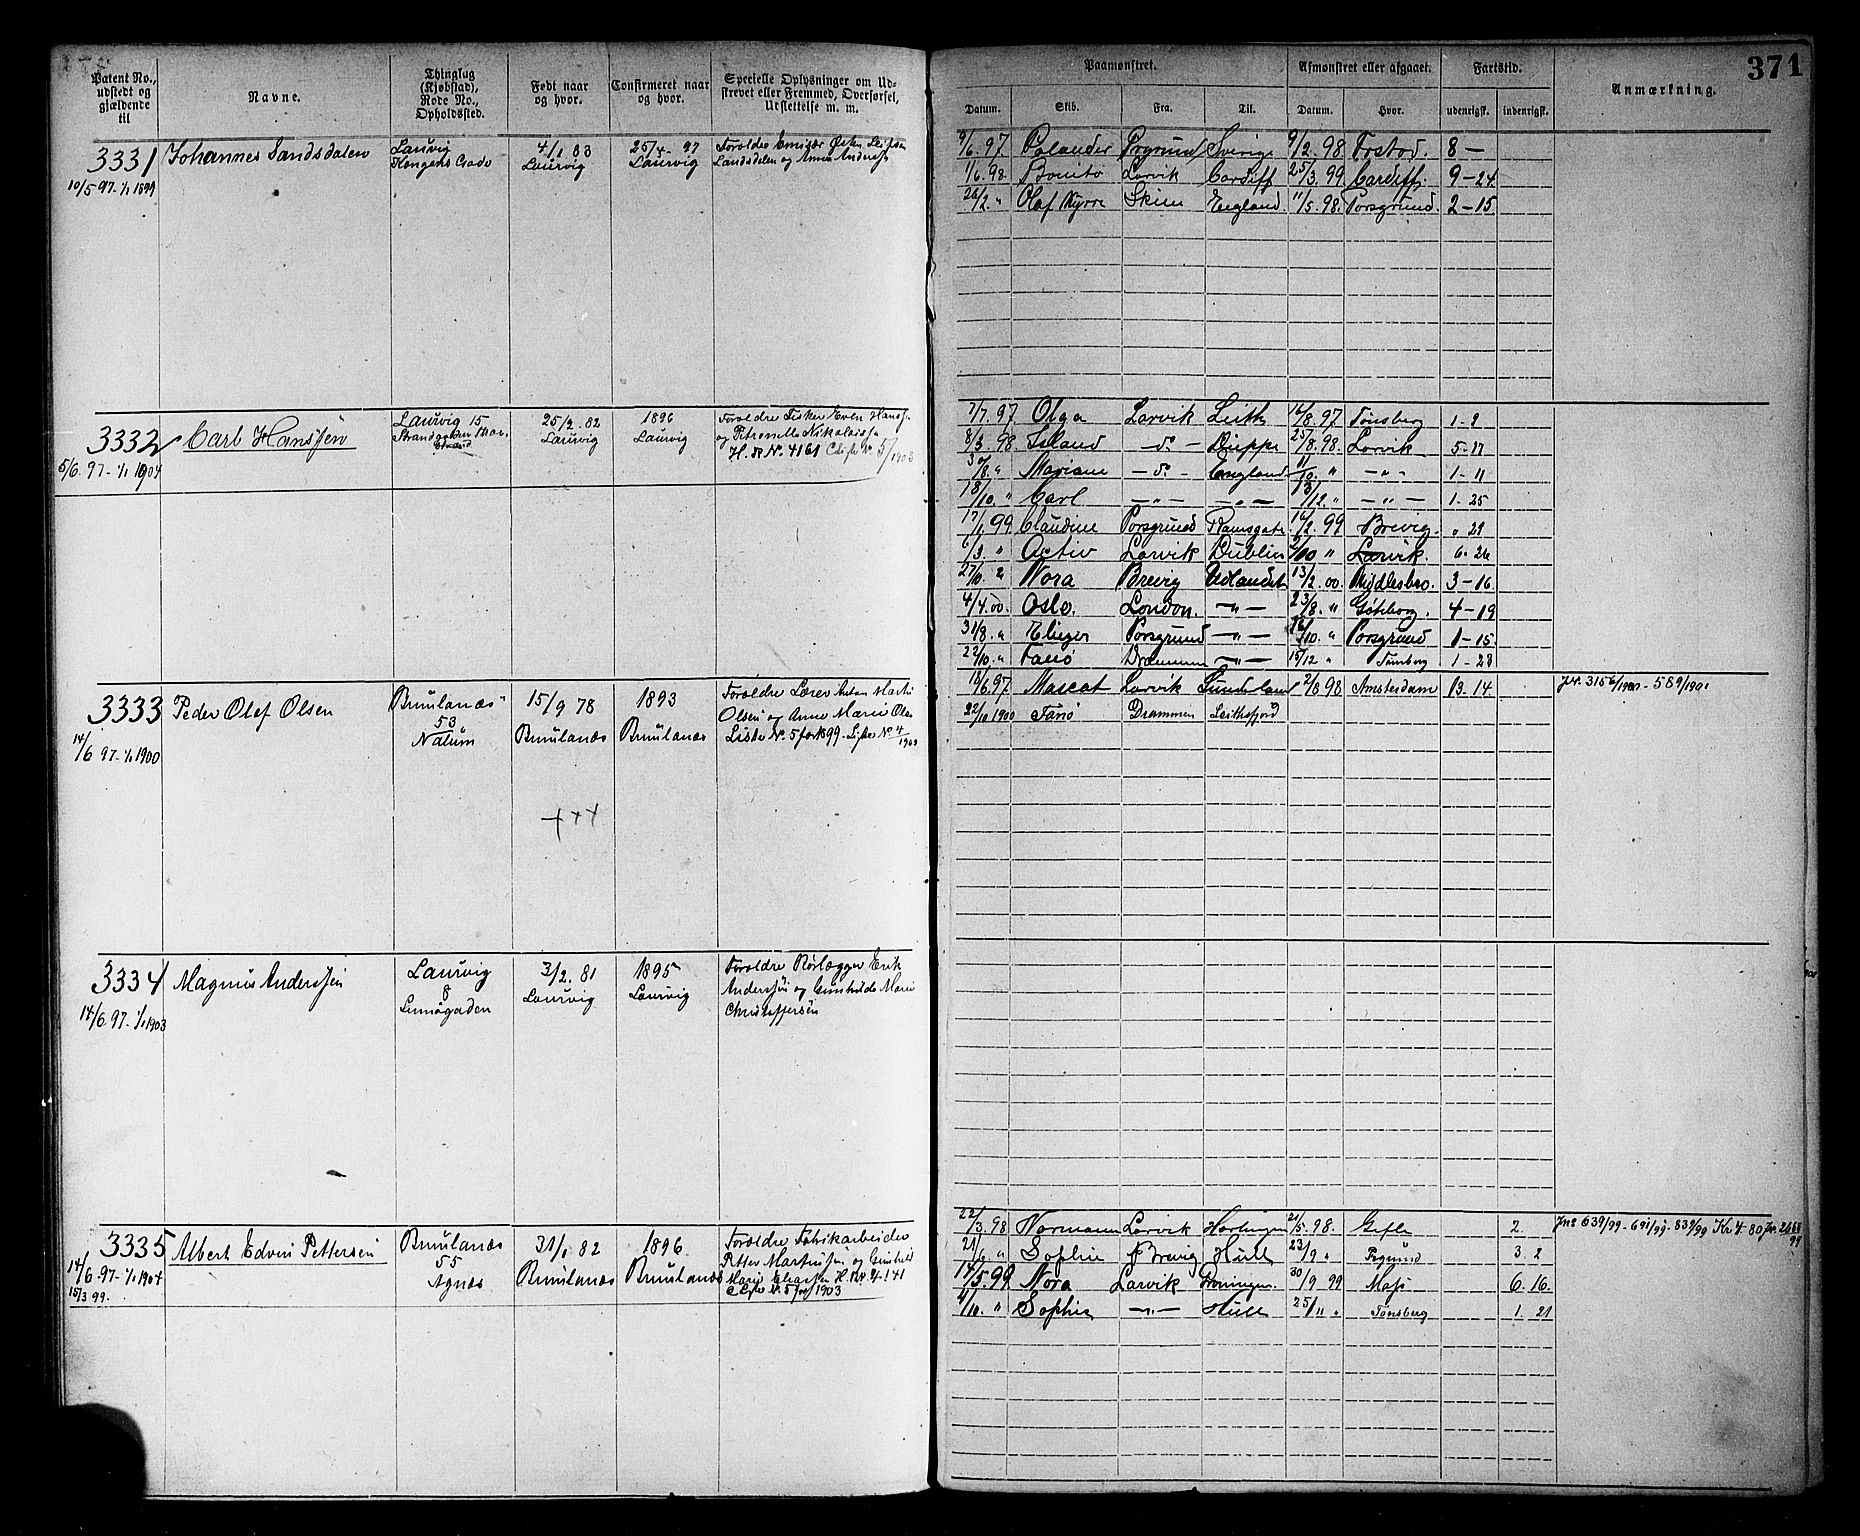 371
Patent No., udstedt og gjældende til
Navne.
Thinglag (Kjøbstad), Rode No., Opholdssted.
Født naar og hvor.
Confirmeret naar og hvor.
Specielle Oplysninger om Udskrevet eller Fremmed, Overførsel, Udslettelse m. m.
Paamønstret.
Afmønstret eller afgaaet.
Fartstid.
Anmærkning.
Datum. Skib. Fra. Til. Datum. Hvor. udenrigsk. indenrigsk.
3331 Johannes Landsdalen Laurvig 4/1 83 Laurvig 25/4 97 Laurvig
10/5 97-1/1 1899
Landsdalen og Anna Anders
9/6.97 Polander Sverige 9/2.98 Frstad. 8 —
11/6.98. Bonito Larvik Cardiff 25/3.99 Cardiff. 9-24
26/2. " Olaf Kyrre Skien England. 11/5.98. Porsgrund. 2-15
3332 Carl Hanssen Laurvig 15 25/2.82 Laurvig 1896 Laurvig Foreldre Fisker Even Hanss.
5/6.97-1/1 1904
og Petronelle Nikolaiss.
H. R No. 4161 5/1903
7/7.97 Olga Larvik Leith 16/8.97 Tønsberg 1-2
8/3 98 Island - do - Dieppe 25/8.98. Larvik 5-17
Mariane - do - England 1-11
18/10. " Carl - " - - " - /12. " - " - 1-25
17/1 99. Claudine Porsgrund Ramsgate 16/2.99 Brevig. " 29
6/3 " Activ Larvik Dublin 2/10 " Larvik. 6.26
27/10. " Nora Brevig Udlandet 13/2.00. Middlesbro. 3-16
4/4.00. Oslo. London. - " - 23/8. " Göteborg. 4-19
31/8. " Elieger Porsgrund - " - 16/10. " Porsgrund 1-15.
22/10. " Fanø Drammen - " - 15/12 " Tønsberg 1-23
3333 Peder Olaf Olsen Brunlanæs 53 Nalum 15/9 78 Brunlanæs 1893 Brunlanæs
14/6 97-1/1 1900
Foreldre Lærer Anton Martin
Olsen og Anne Marie Ols
Liste No. 5 for 1899. Liste No. 4/1903
18/6.97 Mascat Larvik Sunderland 2/8 98 Amsterdam 13.14. J.nr. 3156/1900 - 589/1901
22/10 1900 Fanø Drammen Leithsfjord
3334 Magnus Anderssen Laurvig 8 3/2.81 Laurvig 1895 Laurvig
14/6.97-1/1 1903
Foreldre Rørlægger Erik
Anderssen og Gunhilde Marie
Christoffersen
3335 Albert Edvin Pettersen Brunlanæs 55 Agnæs 31/1 82 Brunlanæs 1896. Brunlanæs
14/6.97-1/1 1904
15/3 99.
Foreldre Fabrikarbeider
Petter Martinssen og Gunhild
Marie H. R. No. 4141
No. 5 for 1903
22/3.98 Normann Larvik Harlingen 21/5.98. Gefle 2. Jno 639/99-691/99-839/99 Kr 4.80
21/6 " Sophie Brevig Hull 23/9 " Prgrund 3. 2
14/5.99 Nora Larvik Groningen. 30/9 99 Mass 6. 16.
/10. " Sophie - " - Hull 25/11 " Tønsberg 1. 21